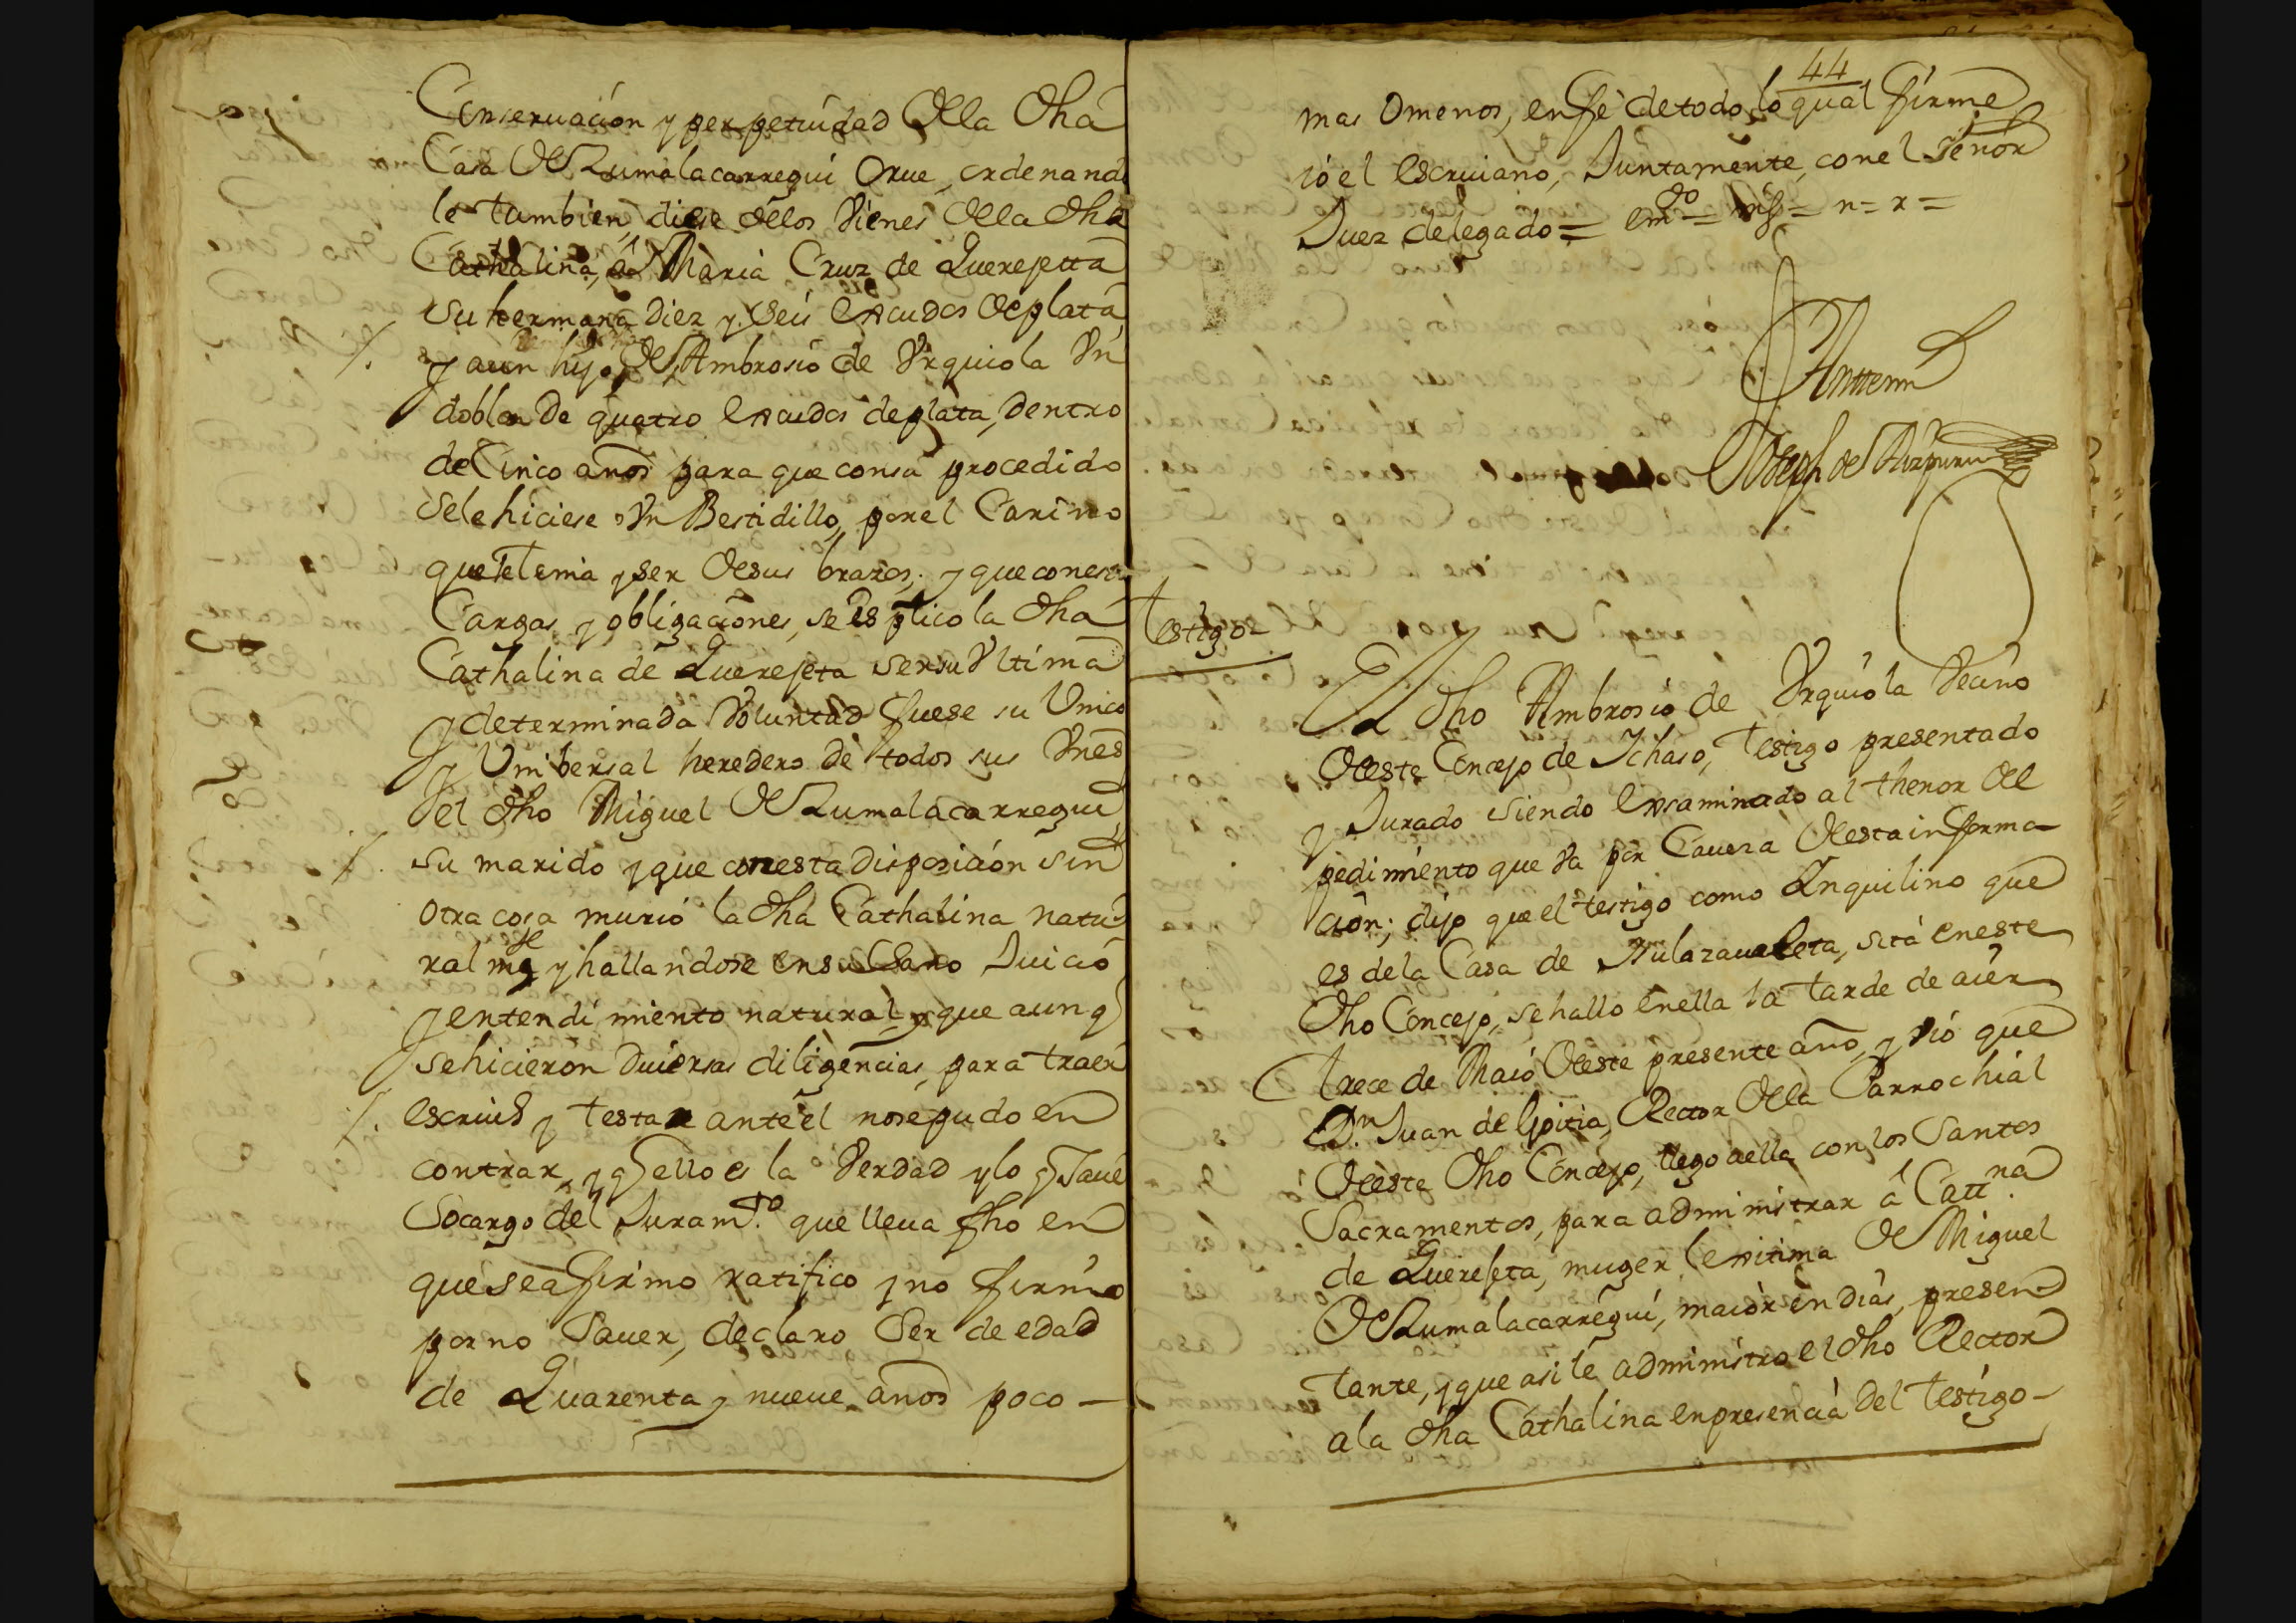 Conseruación y perpetuidad de la dha
Casa de Zumalacarregui Orue, ordenando
le tambien diese de los Vienes de la dha
Cathalina, á Maria Cruz de Querejetta
su hermana diez y seis escudos de plata
y aun hijo de Ambrosio de Vrquiola Vn
doblon De quatro escudos de plata, dentro
de Cinco años para que con su procedido
se le hiciese Vn Bestidillo, por el Cariño
que le tenia y ser de sus brazos; y que con esas
Cargas y obligaciones, se esplico la dha
Cathalina de Querejeta ser su Vltima
y determinada Voluntad fuese su Vnico
y Vnibersal heredero de todos sus Vnes
el dho Miguel de Zumalacarregui
su marido y que con esta disposición sin
otra cosa murió la dha Cathalina natu-
ral mte y hallandose en su Sano Juició
y entendimiento natural, y que aun q
se hicieron Diuersas diligencias, para traer
escriuo y testar ante él no se pudo en
contrar, y q ello es la Verdad y lo q Saue
Socargo del Juramto. que lleua fho en
que se afirmo ratifico y no firmo
por no Sauer, declaro Ser de edad
de Quarenta y nueue años poco —
44
mas Omenos, en fé de todo lo qual firme
ió el escriuano, Juntamente, con el Señor
Juez delegado = emdo = = n = r =
Antemi
Joseph de Aizpuru
Testigo
El dho Ambrosio de Vrquiola Vecino
deste Concejo de Ichaso, Testigo presentado
y Jurado siendo examinado al thenor del
pedimiento que Va por Caueza de esta informa-
ción; dijo que el testigo como Inquilino que
es de la Casa de Aulazaualeta, sita en este
dho Concejo, se hallo en ella la tarde de aier
trece de Maió deste presente año, y vió que
Dn. Juan de Goitia, Rector de la Parrochial
deste dho Concejo, llego a ella con los Santos
Sacramentos, para administrar á Cattna.
de Querejeta, muger lexitima de Miguel
de Zumalacarregui, maiór en dias, presen-
tante, y que asi le administro el dho Rector
a la dha Cathalina en presencia del testigo —